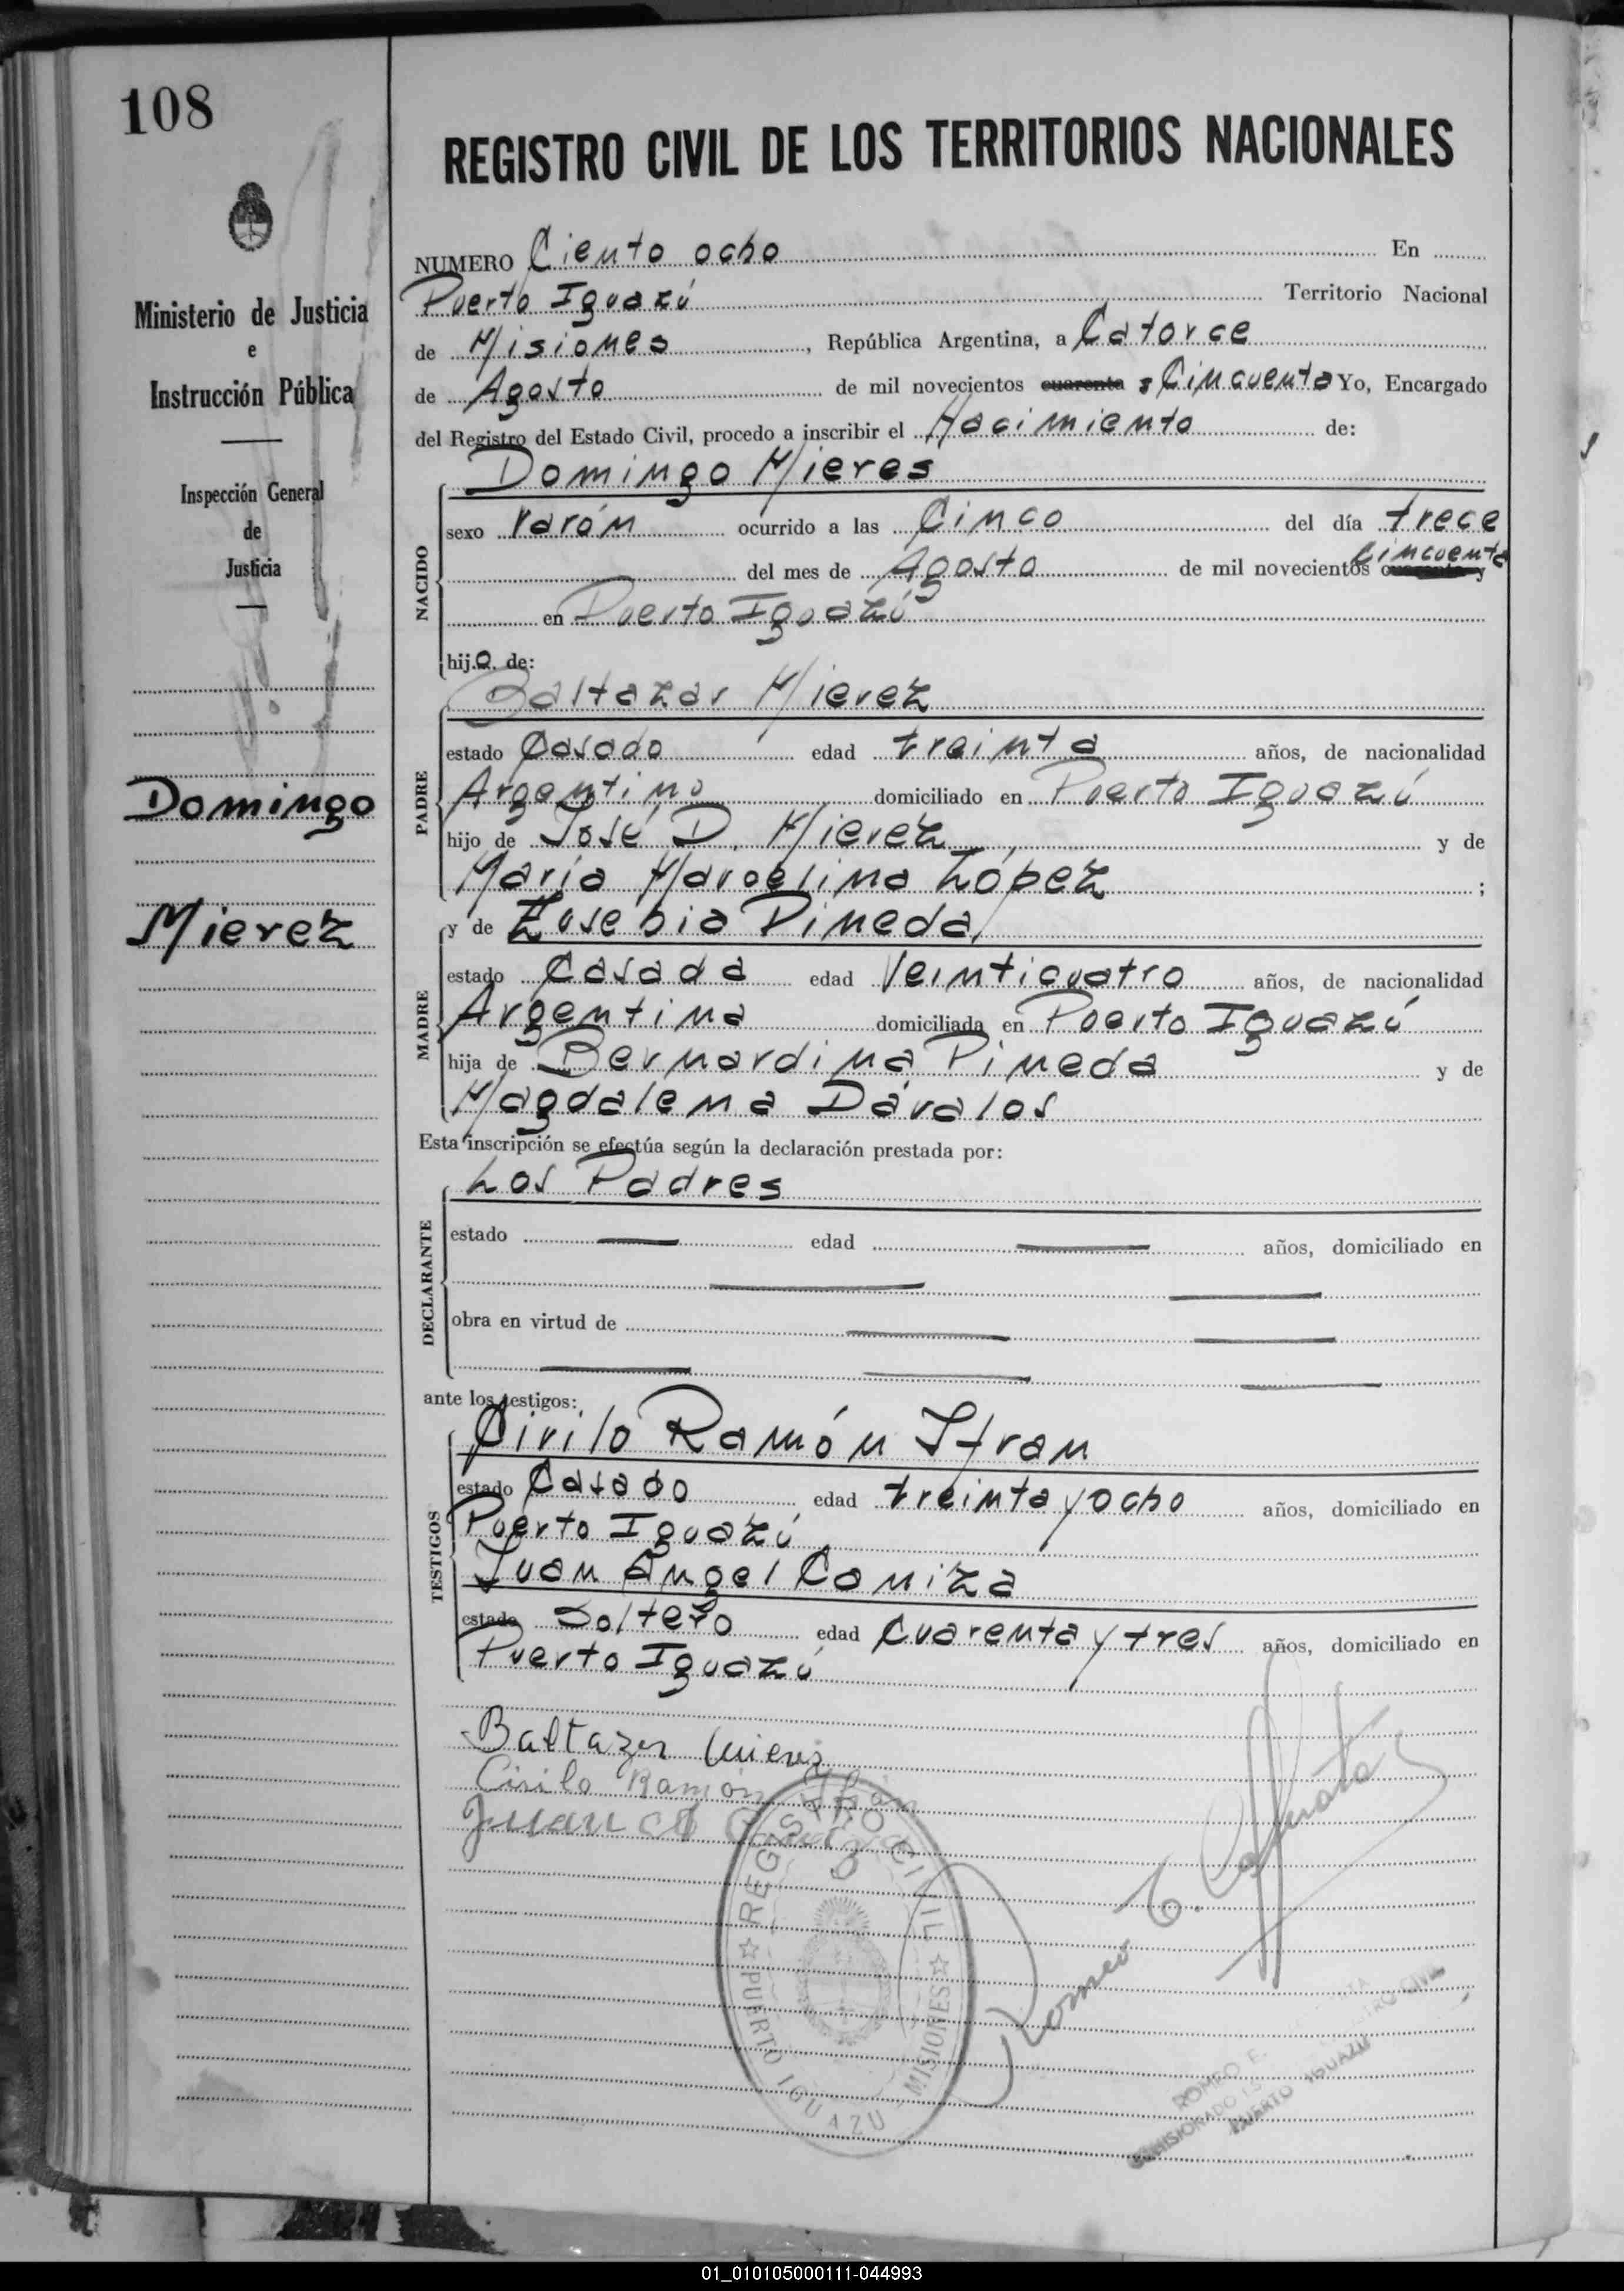 108
REGISTRO CIVIL DE LOS TERRITORIOS NACIONALES
Ministerio de Justicia
e
Instrucción Pública
Inspección General
de
Justicia
Domingo
Mierez
NUMERO Ciento ocho En
Puerto Iguazú Territorio Nacional
de Misiones, República Argentina, a Catorce
de Agosto de mil novecientos cuarenta y Cincuenta Yo, Encargado
del Registro del Estado Civil, procedo a inscribir el Nacimiento de:
Domingo Mieres
NACIDO
sexo varón ocurrido a las Cinco del día trece
del mes de Agosto de mil novecientos cuarenta y Cincuenta
en Puerto Iguazú
hijo de:
Baltazar Mierez
PADRE
estado Casado edad treinta años, de nacionalidad
Argentino domiciliado en Puerto Iguazú
hijo de José D. Mierez y de
María Marcelina López ;
y de Eusebia Pineda
MADRE
estado Casada edad Veinticuatro años, de nacionalidad
Argentina domiciliada en Puerto Iguazú
hija de Bernardina Pineda y de
Magdalena Dávalos
Esta inscripción se efectúa según la declaración prestada por:
Los Padres
DECLARANTE
estado edad años, domiciliado en
obra en virtud de
ante los testigos:
Cirilo Ramón Ifran
TESTIGOS
estado Casado edad treinta y ocho años, domiciliado en
Puerto Iguazú
Juan Angel Caniza
estado Soltero edad Cuarenta y tres años, domiciliado en
Puerto Iguazú
Baltazar Mierez
Cirilo Ramón Ifrán
Juan A Caniza
REGISTRO CIVIL
PUERTO IGUAZU - MISIONES
Romeo E.
ROMEO E.
COMISIONADO
REGISTRO CIVIL
PUERTO IGUAZU
01_010105000111-044993